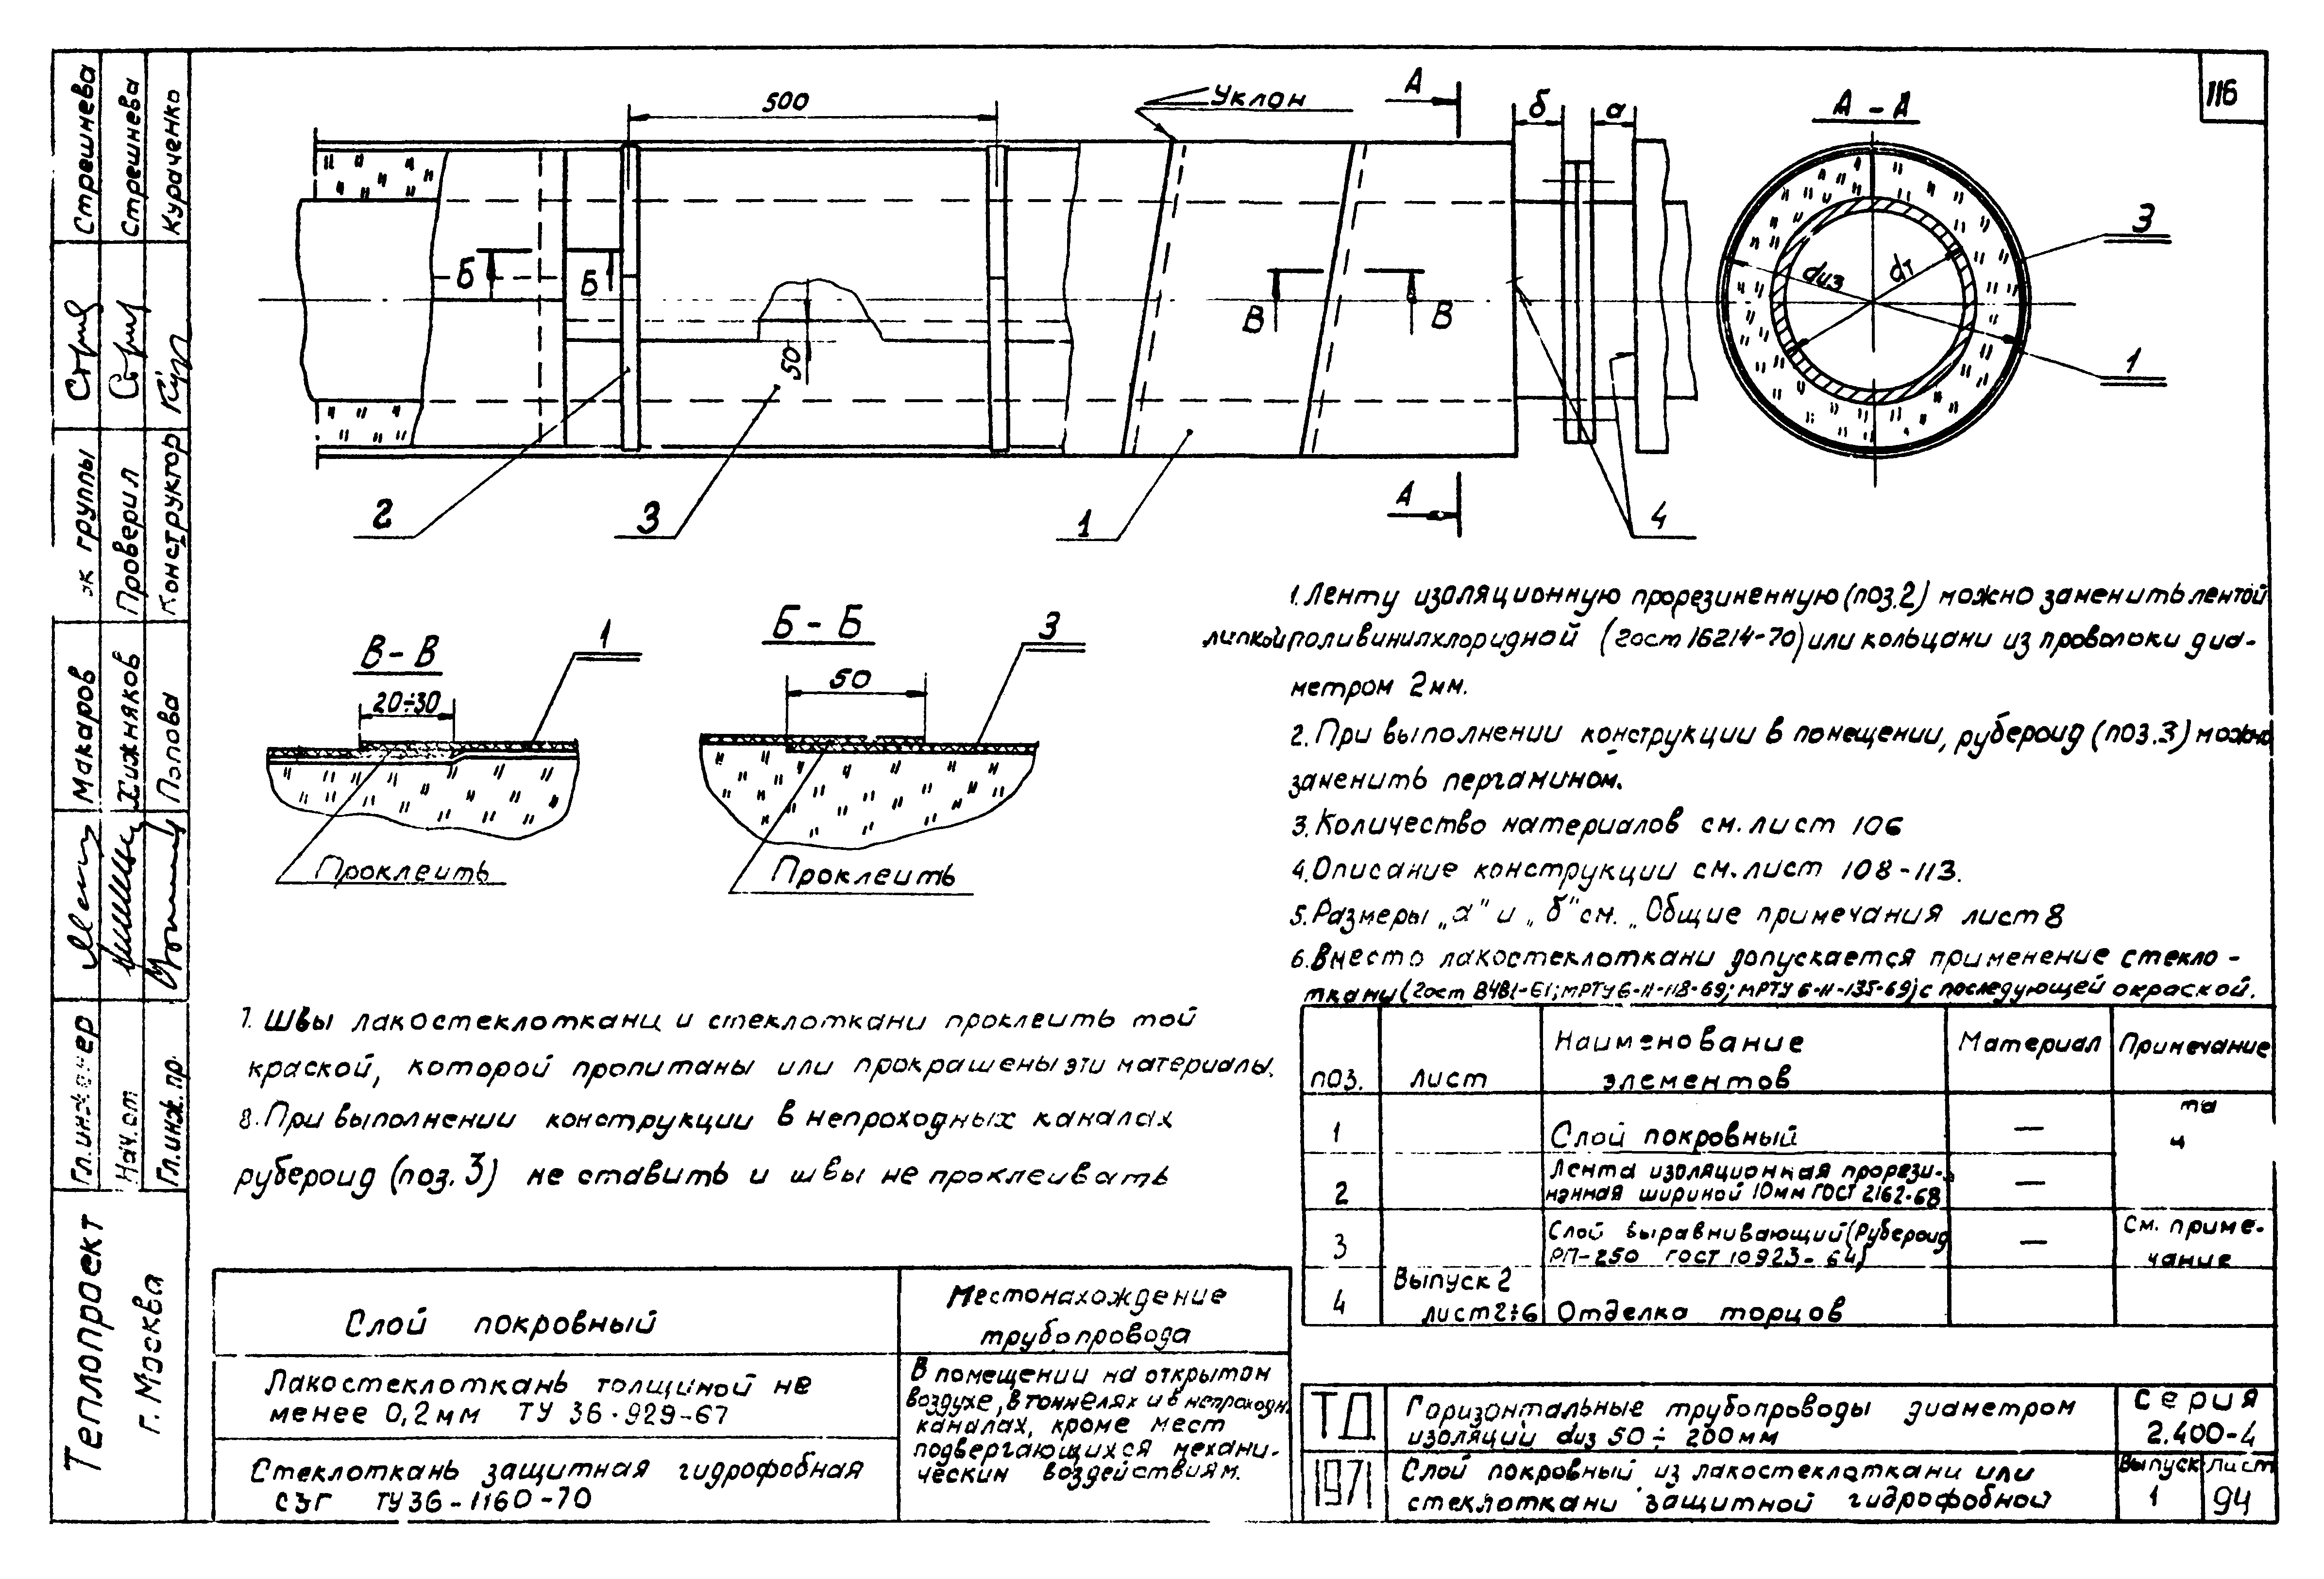 116
500
Уклон
А
б
а
А - А
Б
Б
50
В
В
dиз
dт
3
1
2
3
1
А
4
В - В
20÷30
1
Проклеить
Б - Б
50
3
Проклеить
1. Ленту изоляционную прорезиненную (поз.2) можно заменить лентой
липкой поливинилхлоридной (гост 16214-70) или кольцами из проволоки диа-
метром 2мм.
2. При выполнении конструкции в помещении, рубероид (поз.3) можно
заменить пергамином.
3. Количество материалов см. лист 106
4. Описание конструкции см. лист 108-113.
5. Размеры „а" и „б" см. „Общие примечания лист 8
6. Вместо лакостеклоткани допускается применение стекло-
ткани (гост 8481-61; МРТУ 6-11-118-69; МРТУ 6-11-135-69) с последующей окраской.
7. Швы лакостеклоткани и стеклоткани проклеить той
краской, которой пропитаны или прокрашены эти материалы.
8. При выполнении конструкции в непроходных каналах
рубероид (поз. 3) не ставить и швы не проклеивать
поз.
лист
Наименование
элементов
Материал
Примечание
1
Слой покровный
—
та
ч
2
Лента изоляционная прорези-
ненная шириной 10мм ГОСТ 2162-68
—
3
Слой выравнивающий (Рубероид
РП-250 ГОСТ 10923-64)
—
См. приме-
чание
4
Выпуск 2
лист 2÷6
Отделка торцов
Слой покровный
Местонахождение
трубопровода
Лакостеклоткань толщиной не
менее 0,2мм ТУ 36-929-67
Стеклоткань защитная гидрофобная
СЗГ ТУ36-1160-70
В помещении на открытом
воздухе, в тоннелях и в непроходн.
каналах, кроме мест
подвергающихся механи-
ческим воздействиям.
ТД
1971
Горизонтальные трубопроводы диаметром
изоляции dиз 50 ÷ 200мм
Слой покровный из лакостеклоткани или
стеклоткани защитной гидрофобной
Серия
2.400-4
Выпуск
1
лист
94
Теплопроект
г. Москва
Гл.инженер
Макаров
эк группы
Стрешнева
Нач.от
Хижняков
Проверил
Стрешнева
Гл.инж.пр.
Попова
Конструктор
Кураченко